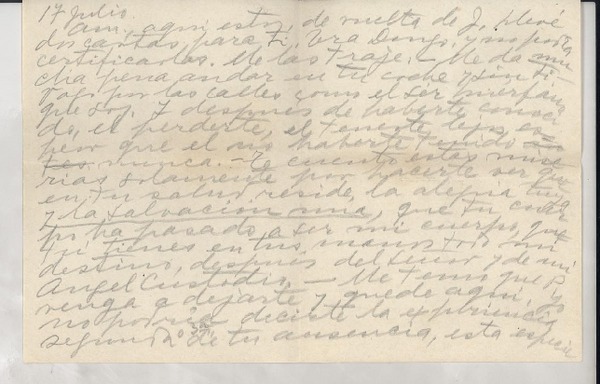 17 julio
Am, aquí estoy, de vuelta de J, llevé
dos cartas, para ti, y era Domgo, y no podía
certificarlas. Me las traje. - Me da mu
cha pena andar en tu coche y sin ti.
Vago por las calles como el ser huérfano
que soy. Y después de haberte conoci
do, el perderte, el tenerte lejos, es
peor que el no haberte tenido
nunca. - Te cuento estas mise
rias solamente por hacerte ver que
en tu salud reside la alegría tuya
y la salvación mía, que tu cuer
po ha pasado a ser mi cuerpo, que
tú tienes en tus manos todo mi
destino, después del Señor y de mi
Angel Custodio. - Me temo que P
venga a dejarte y quede aquí, yo
no podría decirte la experiencia
segunda de tu ausencia, esta especie